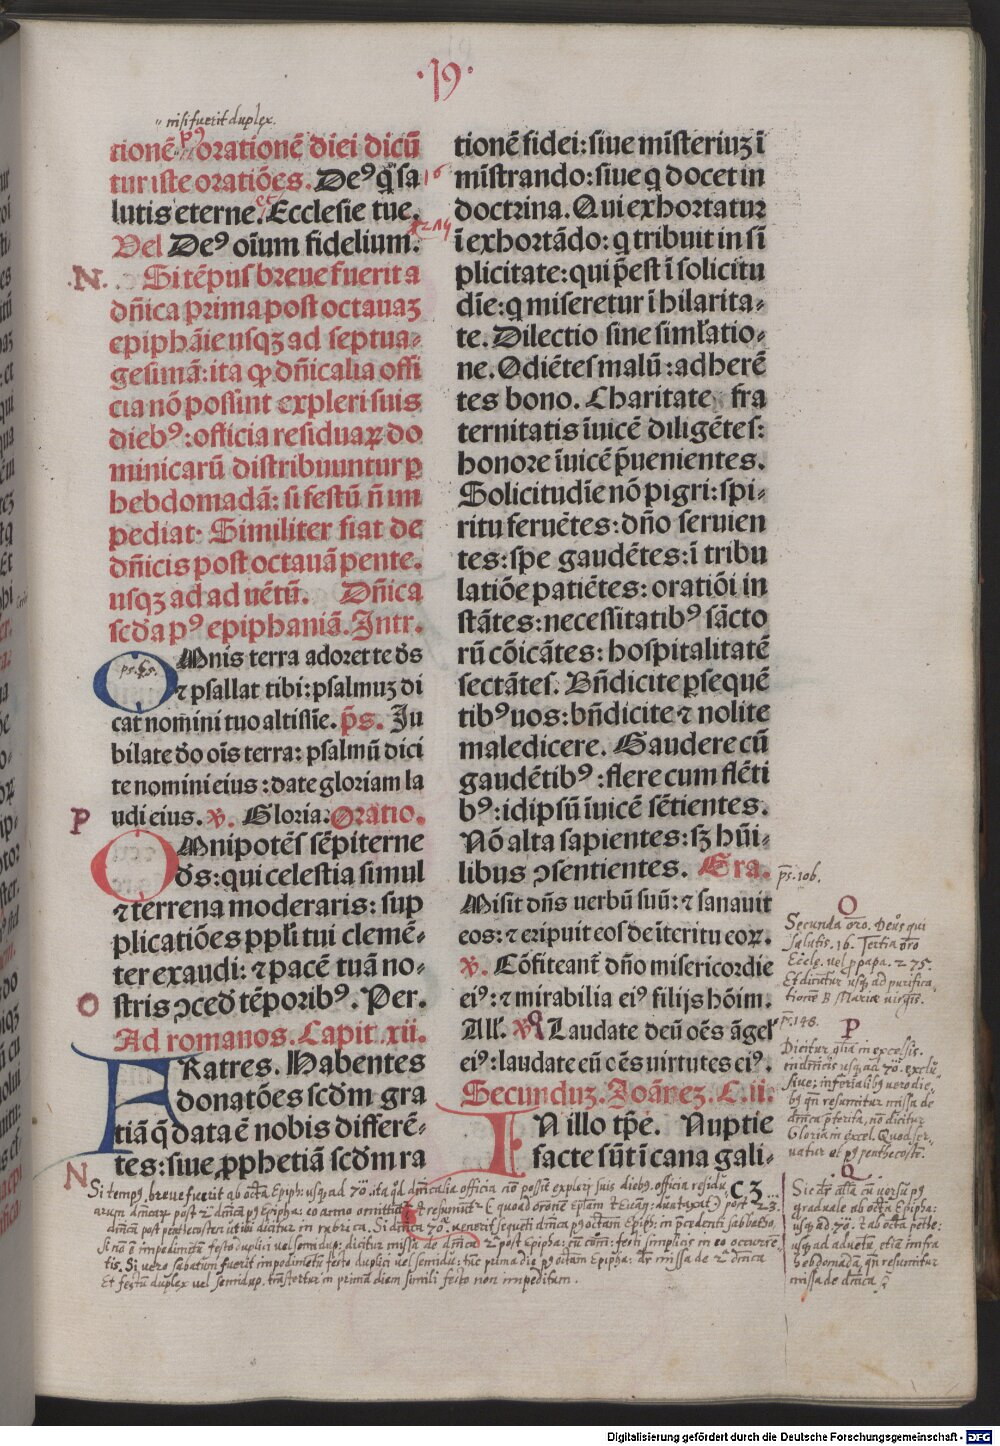 ·19·
nisi fuerit duplex.
tionē p⁹ orationē diei dicū
tur iste oratiōes. De⁹ q̇ sa
lutis eterne. et Ecclesie tue.
Vel De⁹ oīum fidelium.
N. Si tēpus breve fuerit a
dn̄ica prima post octavaʒ
epiphāie usqʒ ad septua-
gesimā: ita qꝙ dn̄icalia offi
cia nō possint expleri suis
dieb⁹: officia residuaꝝ do
minicarū distribuuntur ꝑ
hebdomadā: si festū n̄ im
pediat. Similiter fiat de
dn̄icis post octavā pente.
usqʒ ad ad uētū. Dn̄ica
scd̄a p⁹ epiphaniā. Intr.
ps. 65.
OMnis terra adoret te d̄s
⁊ psallat tibi: psalmuʒ di
cat nomini tuo altissīe. p̄s. Ju
bilate d̄o ois terra: psalmū dici
te nomini eius: date gloriam la
P udi eius. ℣. Gloria: Oratio.
OMnipotēs sēpiterne
d̄s: qui celestia simul
⁊ terrena moderaris: sup
plicatiōes ppl̄i tui clemē-
ter exaudi: ⁊ pacē tuā no-
O stris ↄced̄ tēporib⁹. Per.
Ad romanos. Capit. xii.
FRatres. Habentes
donatōes scd̄m gra
tiā q̄ data ē nobis differē-
tes: sive ꝓphetiā scd̄m ra
tionē fidei: sive misteriuʒ ī
mīstrando: sive q docet in
doctrina. Qui exhortatur
ī exhortādo: q tribuit in sī
plicitate: qui p̄est ī solicitu
dīe: q miseretur ī hilarita-
te. Dilectio sine siml̄atio-
ne. Odiētes malū: adherē
tes bono. Charitatē fra
ternitatis īvicē diligētes:
honore īvicē p̄venientes.
Solicitudīe nō pigri: spi-
ritu fervētes: dn̄o servien
tes: spe gaudētes: ī tribu
latiōe patiētes: oratiōi in
stātes: necessitatib⁹ sācto
rū cōicātes: hospitalitatē
sectātes. Bn̄dicite ꝑsequē
tib⁹ vos: bn̄dicite ⁊ nolite
maledicere. Gaudere cū
gaudētib⁹: flere cum flēti
b⁹: idipsū īvicē sētientes.
Nō alta sapientes: sʒ hūi-
libus ↄsentientes. Gra.
Misit dn̄s verbū suū: ⁊ sanavit
eos: ⁊ eripuit eos de īteritu eoꝝ.
℣. Cōfiteant̄ dn̄o misericordie
ei⁹: ⁊ mirabilia ei⁹ filijs hōim.
All'. ℣. Q Laudate deū oēs āgel'
ei⁹: laudate eū oēs virtutes ei⁹.
Secunduʒ. Joāneʒ. C. ii.
IN illo tp̄e. Nuptie
facte sūt ī cana gali-
p̄s. 106.
O
Secunda oro. Deus qui
salutis. 16. Tertia pro
Eccle. vel p papa. 275.
Et dicūtur usq ad purifica-
tionē B. Mariæ virgīs.
p̄s. 148.
P
Dicitur gl̄ia in excelsis.
in dnicis usq ad 70. exclu
sive; in ferialibꝯ vero die
bꝯ qn̄ resumitur missa de
dm̄ca p̄terita, nō dicitur
Gloria in excel. Quod ser-
vatur et p⁹ penthecoste.
Q
usq ad 70. & ab octa pēthe:
usq ad adventū, etiā infra
hebdomadā, qn̄ resumitur
missa de dm̄ca
N
Si tempꝯ breve fuerit ab octa Epiph: usq ad 70. ita qd dm̄icalia officia nō possīt expleri suis diebꝯ. officia residu
C3
dm̄cā post penthecosten, ut ibi dicitur in rubrica. Si dm̄ica 70. venerit sequēti dm̄ca pꝯ octam Epiph: in p̄cedenti sabbatho,
si nō ē impeditum festo duplici vel semidup: dicitur missa de dm̄ica 2ª post Epipha: cū cōm: festi simplicis in eo occurrē-
tis. Si vero sabatum fuerit impeditum festo duplici vel semidu: tūc prima die pꝯ octam Epipha: dr̄ missa de 2ª dm̄ica
Et festū duplex vel semidup. trāsfertur in primā diem simili festo non impeditum.
Digitalisierung gefördert durch die Deutsche Forschungsgemeinschaft - DFG